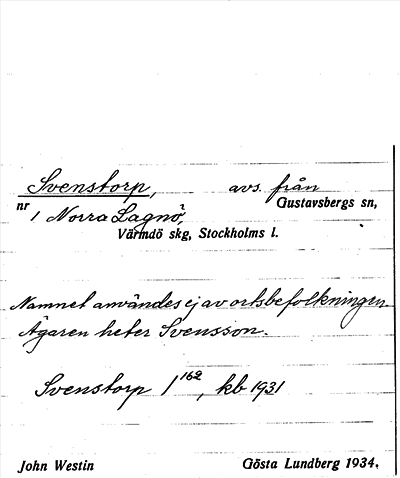 Svenstorp, avs. från
Gustavsbergs sn,
nr 1 Norra Lagnö,
Värmdö skg, Stockholms l.
Namnet användes ej av ortsbefolkningen
Ägaren heter Svensson.
Svenstorp 1 162, kb 1931
John Westin Gösta Lundberg 1934.